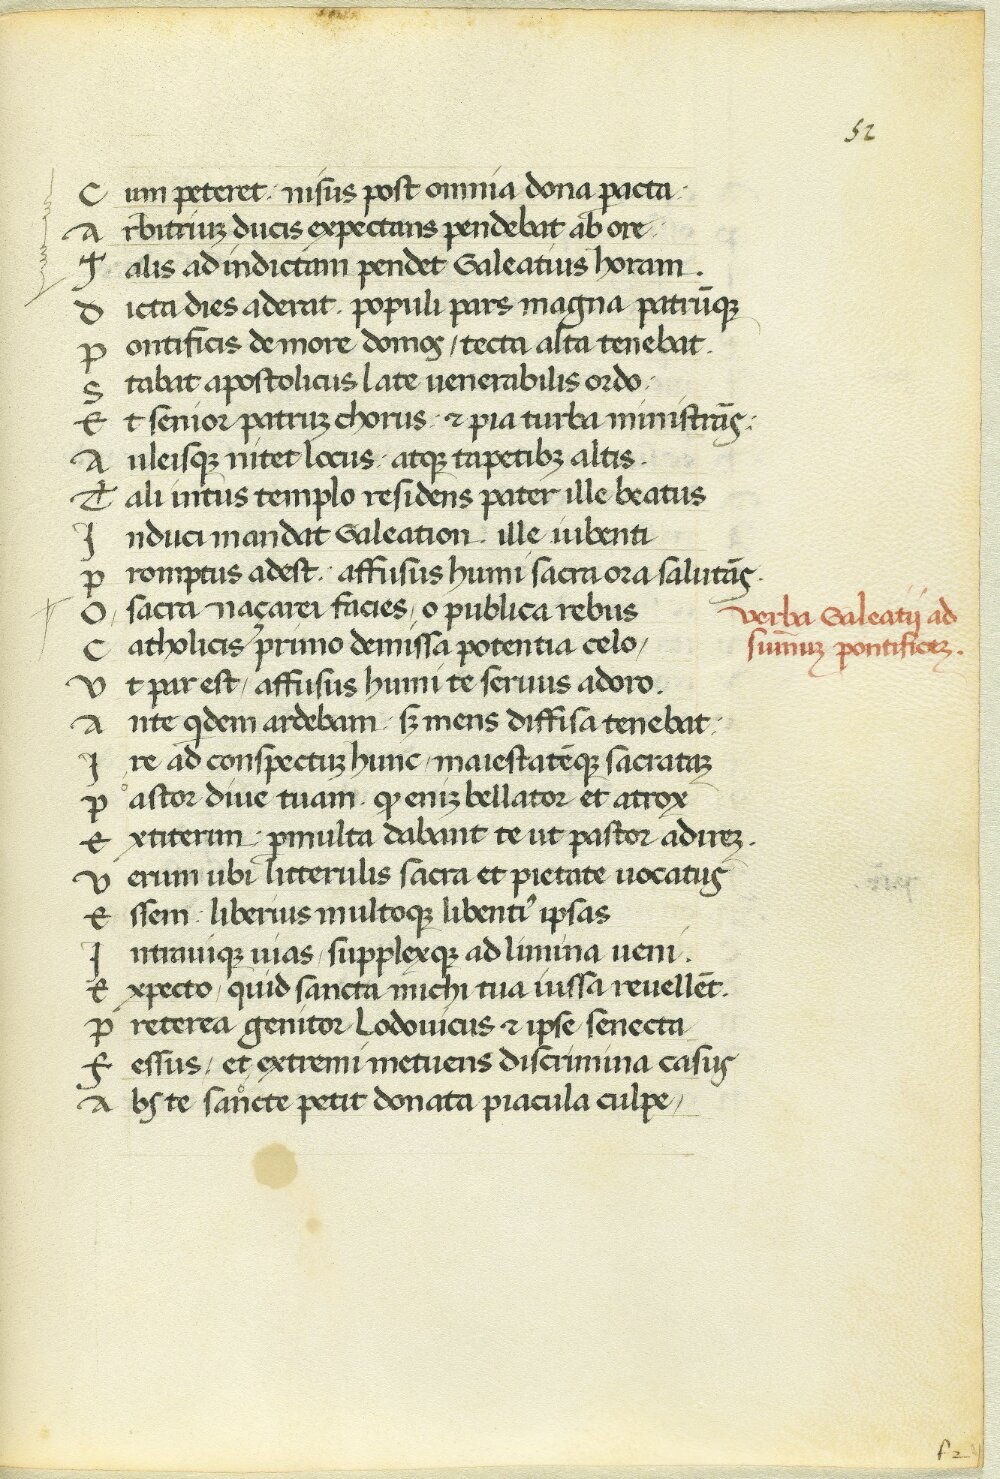 52
Cum peteret. nisus post omnia dona pacta.
Arbitriuꝫ ducis expectans pendebat ab ore.
Talis ad indictam pendet Galeatius horam.
Dicta dies aderat. populi pars magna patrūqꝫ
Pontificis de more domos / tecta alta tenebat.
Stabat apostolicus late uenerabilis ordo.
Et senior patruꝫ chorus. ⁊ pia turba ministrāꝫ.
Auleisqꝫ nitet locus. atqꝫ tapetibꝫ altis.
Tali intus templo residens pater ille beatus
Induci mandat Galeation. ille iubenti
Promptus adest. affusus humi sacra ora salutās.
O, sacra naçarei facies, o publica rebus
verba Galeatij ad
summuꝫ pontificeꝫ.
Catholicis, primo demissa potentia celo,
Vt par est, affusus humi te seruus adoro.
Ante qdem ardebam. sꝫ mens diffisa tenebat.
Ire ad conspectuꝫ hunc, maiestatēqꝫ sacrataꝫ
Pastor diue tuam. qꝫ eniꝫ bellator et atrox
Extiterim. pmulta dabant te ut pastor adireꝫ.
Verum ubi litterulis sacra et pietate uocatus
Essem. liberius multoqꝫ libentiꝰ ipsas
Intrauiqꝫ uias, supplexqꝫ ad limina ueni.
Expecto, quid sancta michi tua iussa reuellēt.
Preterea genitor Lodouicus ⁊ ipse senecta
Fessus, et extremi metuens discrimina casus
Abs te sancte petit donata piacula culpe,
f 2